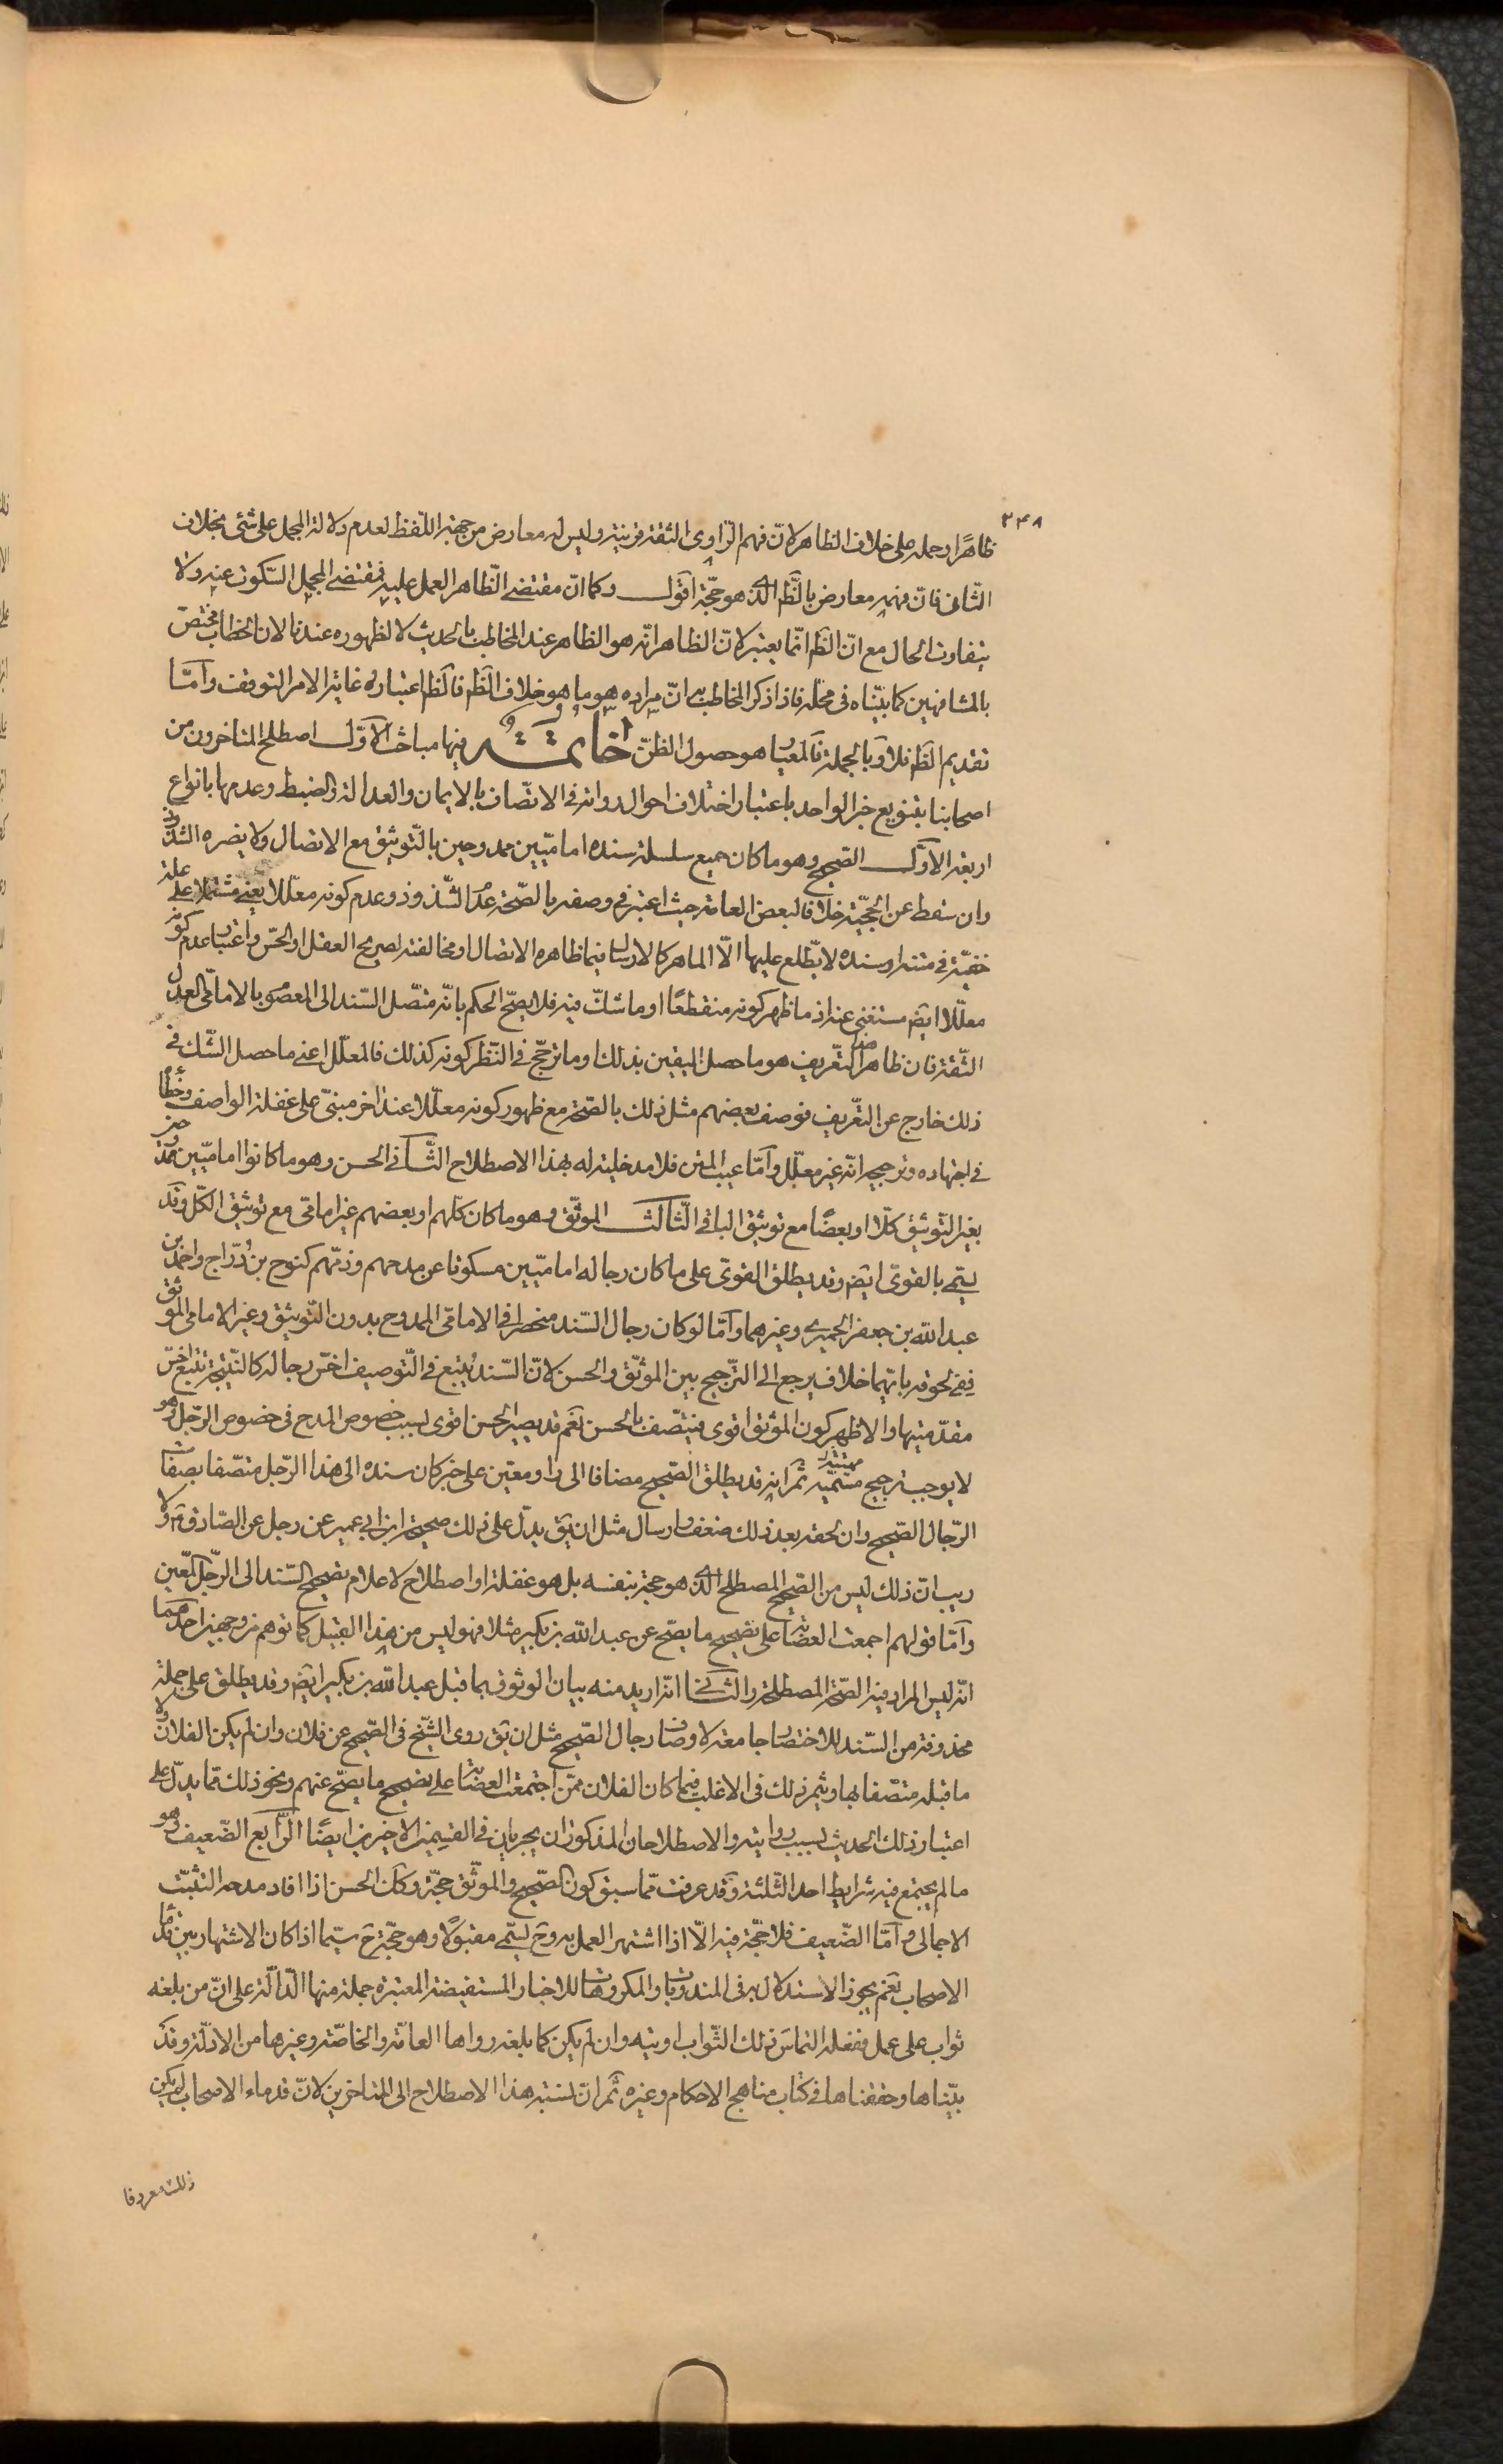 ٢٣٨
ظاهرًا وحمله على خلاف الظاهر لانّ فهم الرّاوى الثقة قرينة وليس له معارض من جهة اللّفظ لعدم دلالة المجمل على شئ بخلاف
الثّانى فانّ فهمه معارض بالظّم الّذى هو حجّة اقول وكما انّ مقتضى الظّاهر العمل عليه فمقتضى المجمل السّكوت عنه ولا
يتفاوت الحال مع انّ الظّم انّما يعتبر لانّ الظاهر انّه هو الظاهر عند المخاطب بالحديث لا لظهوره عندنا لان الخطاب مختصّ
بالمشافهين كما بيّنّاه فى محلّه فاذا ذكر المخاطب به انّ مراده هو ما هو خلاف الظّم فالظّم اعتباره غاية الامر التوقف وامّا
تقديم الظّم فلا وبالجملة فالمعيار هو حصول الظنّ خاتمة فيها مباحث الاوّل اصطلح المتاخرون من
اصحابنا بتنويع خبر الواحد باعتبار اختلاف احوال رواته فى الاتّصاف بالايمان والعدالة والضبط وعدمها بانواع
اربعة الاوّل الصّحيح وهو ما كان جميع سلسلة سنده اماميّين ممدوحين بالتّوثيق مع الاتصال ولا يضره الشذوذ
وان سقط عن الحجيّة خلافا لبعض العامة حيث اعتبر فى وصفه بالصّحة عدم الشّذوذ وعدم كونه معلّلا يعنى مشتملا على علة
خفيّة فى متنه او سنده لا يطّلع عليها الّا الماهر كالارسال فيما ظاهره الاتصال او مخالفته لصريح العقل او الحسّ واعتبار عدم كونه
معلّلا ايضم مستغنى عنه اذ ما ظهر كونه منقطعًا او ما شكّ فيه فلا يصحّ الحكم بانّه متّصل السّند الى المعصوم بالامامى العدل
الثّقة فان ظاهر هذا التّعريف هو ما حصل اليقين بذلك او ما ترجّح فى النّظر كونه كذلك فالمعلّل اعنى ما حصل الشّك فى
ذلك خارج عن التّعريف فوصف بعضهم مثل ذلك بالصّحة مع ظهور كونه معلّلا عند اخر مبنىّ على غفلة الواصف وخطأ
فى اجتهاده وترجيحه انّه غير معلّل وامّا عيب المتن فلا مدخلية له بهذا الاصطلاح الثّانى الحسن وهو ما كانوا اماميّين ممدوحين
بغير التّوثيق كلّا او بعضًا مع توثيق الباقى الثّالث الموثّق وهو ما كان كلّهم او بعضهم غير امامى مع توثيق الكلّ وقد
يسمّى بالقوىّ ايضم وقد يطلق القوىّ على ما كان رجاله اماميّين مسكوتا عن مدحهم وذمّهم كنوح بن درّاج واحمد بن
عبد الله بن جعفر الحميرى وغيرهما وامّا لو كان رجال السّند منحصرا فى الامامّى الممدوح بدون التّوثيق وغير الامامى الموثق
ففى لحوقه بايّهما خلاف يرجع الى التّرجيح بين الموثّق والحسن لانّ السّند يتبع فى التّوصيف اخسّ رجاله كالنّتيجة تتبع اخسّ
مقدّمتيها والاظهر كون الموثق اقوى فيتّصف بالحسن نعم قد يصير الحسن اقوى بسبب خصوص المدح فى خصوص الرّجل وهو
لا يوجب ترجيح مهيّته ثمّ انه قد يطلق الصّحيح مضافا الى راو معيّن على خبر كان سنده الى هذا الرّجل متصّفا بصفات
الرّجال الصّحيح وان لحقه بعد ذلك ضعف وارسال مثل ان يقّ يدلّ على ذلك صحيحة ابن ابى عمير عن رجل عن الصّادق م ولا
ريب انّ ذلك ليس من الصّحيح المصطلح الّذى هو حجة بنفسه بل هو غفلة او اصطلاح لاعلام تصحيح السّند الى الرّجل المعّين
وامّا قولهم اجمعت العصابة على تصحيح ما يصّح عن عبد الله بن بكير مثلا فهو ليس من هذا القبيل كما توهم من وجهين احدهما
انّه ليس المراد فيه الصّحة المصطلحة والثّانى انّه اريد منه بيان الوثوق بما قبل عبد الله بن بكير ايضم وقد يطلق على جملة
محذوفة من السّند للاختصار جامعة لاوصاف رجال الصّحيح مثل ان يقّ روى الشّيخ فى الصّحيح عن فلان وان لم يكن الفلان ولا
ما قبله متصّفا بها ويثمر ذلك فى الاغلب فيما كان الفلان ممّن اجتمعت العصابة على تصحيح ما يصحّ عنهم ونحو ذلك ممّا يدلّ على
اعتبار ذلك الحديث بسبب روايته والاصطلاحان المذكوران يجريان فى القسيمين الاخيرين ايضًا الرّابع الضّعيف وهو
ما لم يجتمع فيه شرايط احد الثّلثة وقد عرفت ممّا سبق كون الصّحيح والموثّق حجّة وكذا الحسن اذا افاد مدحه التثبّت
الاجمالى وامّا الضّعيف فلا حجّة فيه الّا اذا اشتهر العمل به وحَ يسمّى مقبولًا وهو حجّة حَ سيّما اذا كان الاشتهار بين قدماء
الاصحاب نعم يجوز الاستدلال به فى المندوبات والمكروهات للاخبار المستفيضة المعتبرة جملة منها الدّالّة على انّ من بلغه
ثواب على عمل ففعله التماسَ ذلك الثّواب اوتيه وان لم يكن كما بلغه رواها العامّة والخاصّة وغيرها من الادلّة وقد
بيّناها وحققناها فى كتاب مناهج الاحكام وغيره ثمّ انّ نسبة هذا الاصطلاح الى المتاخرين لانّ قدماء الاصحاب لم يكن
ذلك معروفا